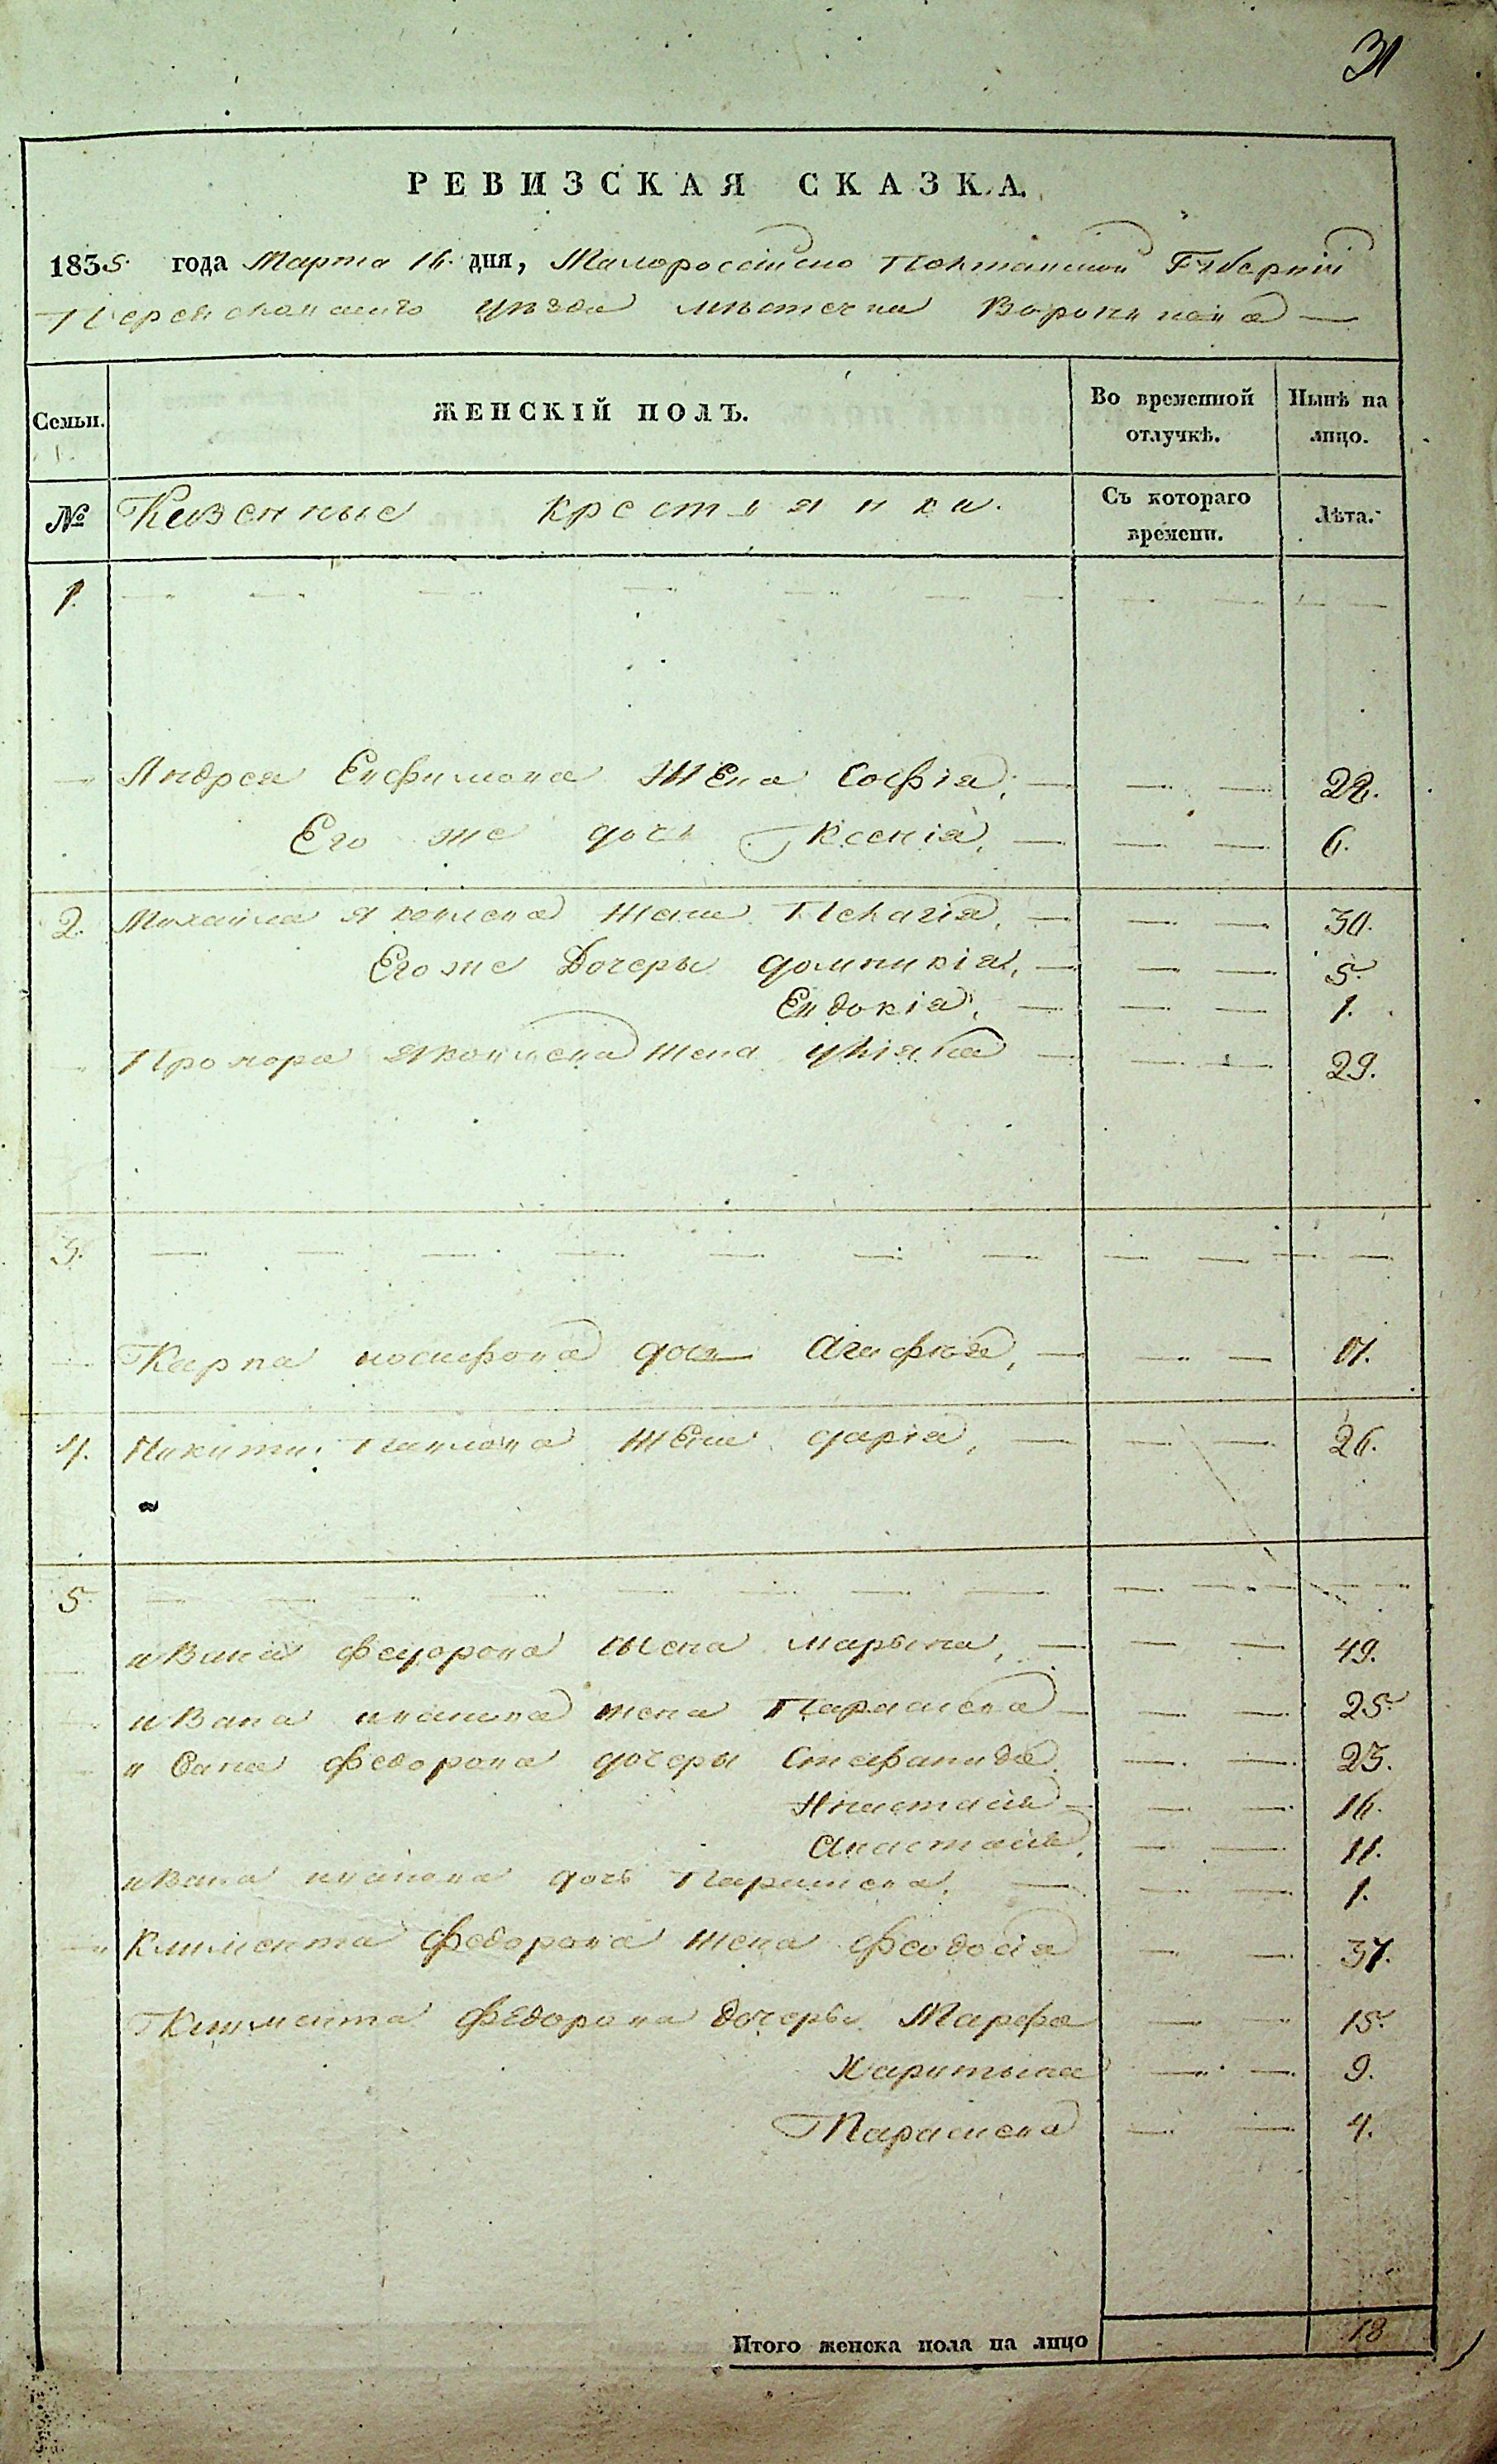 31
РЕВИЗСКАЯ СКАЗКА.
1835. года Марта 16. дня, Малороссійско Полтавской Губерніи
Переяславского уезда местечка Воронкова —
Семьи. ЖЕНСКІЙ ПОЛЪ. Во временной отлучкѣ. Нынѣ на лицо.
№ Казенные крестьянки. Съ котораго времени. Лѣта.
1.
Андрея Евфимова Жена Софія, — — — 22.
Его же дочь Ксенія, — — — 6.
2. Михайла Яковлева жена Пелагія, — — — 30.
Его же Дочеры Домникія, — — — 5.
Евдокія, — — — 1.
Прохора Яковлева жена Уліяна — — — 29.
3. — — — — — — — — — — —
Карпа Иосифова дочь Агафія, — — —
4. Никити Павлова Жена Дарія, — — — 26.
5. — — — — — — — — — — —
Ивана Федорова жена Марына, — — — 49.
Ивана Иванова жена Параскева — — — 25.
Ивана Федорова дочеры Стефанида — — 23.
Анастасія — — — 16.
Анастасія, — — 11.
Ивана Иванова дочь Параскева, — — — 1.
Климента Федорова жена Феодосія — — 37.
Климента Федорова Дочеры Марфа — — 15.
Харитына — — 9.
Параскева — — 4.
Итого женска пола на лицо 18